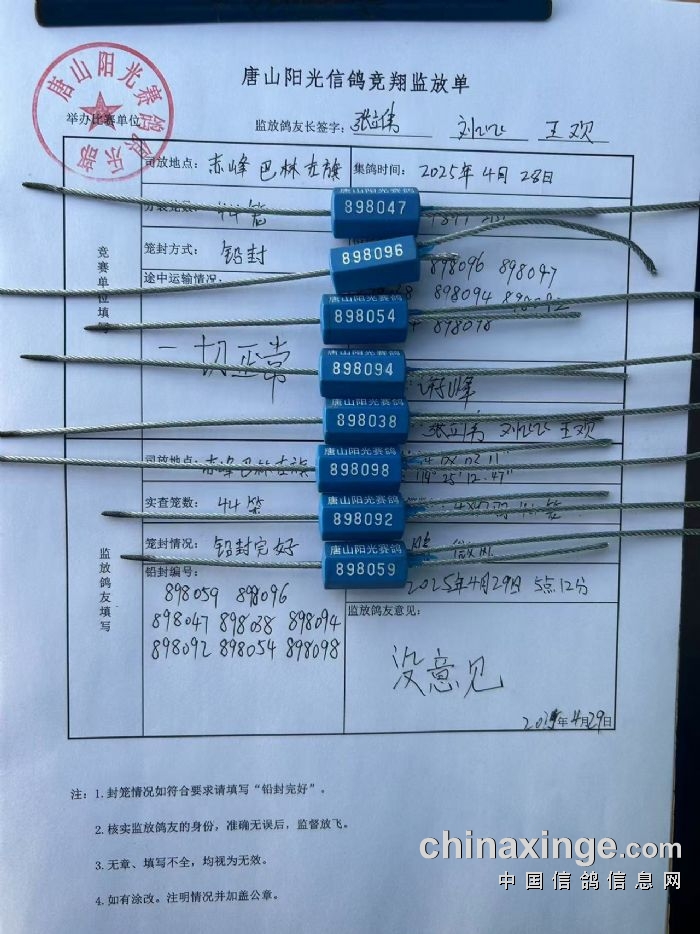 唐山阳光赛鸽俱乐部
唐山阳光信鸽竞翔监放单
举办比赛单位
监放鸽友长签字：张立伟 王欢
竞赛单位填写
司放地点：赤峰 巴林左旗 集鸽时间：2025年4月28日
唐山阳光赛鸽
898047
笼封方式：铅封
898096
898096 898047
途中运输情况：
唐山阳光赛鸽
898094
898054
一切正常
唐山阳光赛鸽
898094
唐山阳光赛鸽
898038
张立伟 王欢
司放地点：赤峰 巴林左旗
唐山阳光赛鸽
898098
119° 25' 12.47"
实查笼数：44笼
唐山阳光赛鸽
898092
监放鸽友填写
笼封情况：铅封完好
唐山阳光赛鸽
898059
微风
铅封编号：
2025年4月29日 5点12分
898059 898096
898047 898038 898094
898092 898054 898098
监放鸽友意见：
没意见
2025年4月29日
注：1.封笼情况如符合要求请填写“铅封完好”。
2.核实监放鸽友的身份，准确无误后，监督放飞。
3.无章、填写不全，均视为无效。
4.如有涂改。注明情况并加盖公章。
chinaxinge.com
中国信鸽信息网